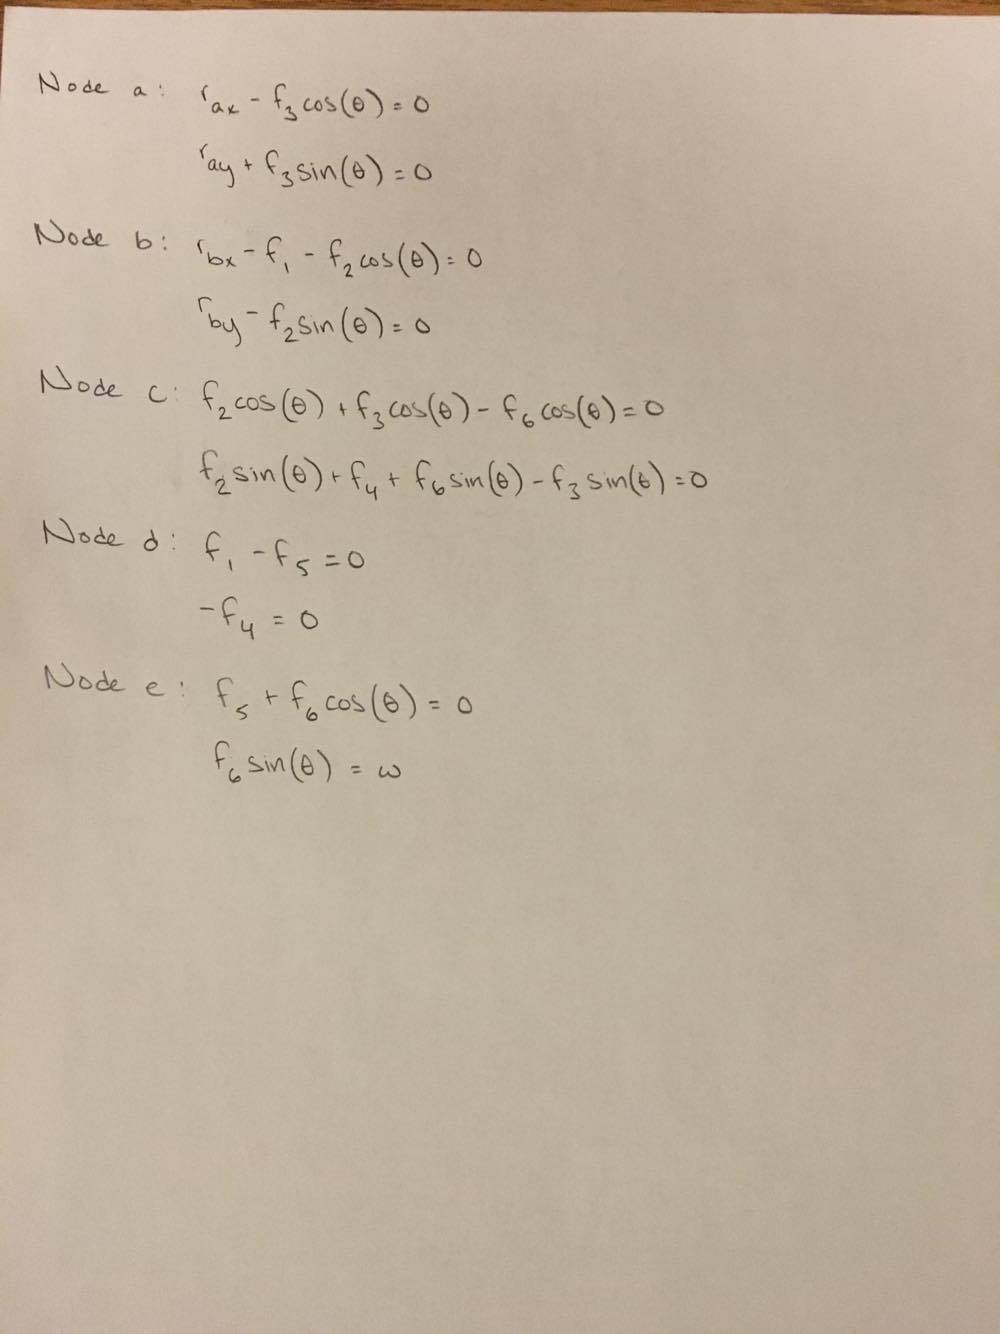 Node a: r_ax - f_3 cos(θ) = 0
r_ay + f_3 sin(θ) = 0
Node b: r_bx - f_1 - f_2 cos(θ) = 0
r_by - f_2 sin(θ) = 0
Node c: f_2 cos(θ) + f_3 cos(θ) - f_6 cos(θ) = 0
f_2 sin(θ) + f_4 + f_6 sin(θ) - f_3 sin(θ) = 0
Node d: f_1 - f_5 = 0
-f_4 = 0
Node e: f_5 + f_6 cos(θ) = 0
f_6 sin(θ) = ω